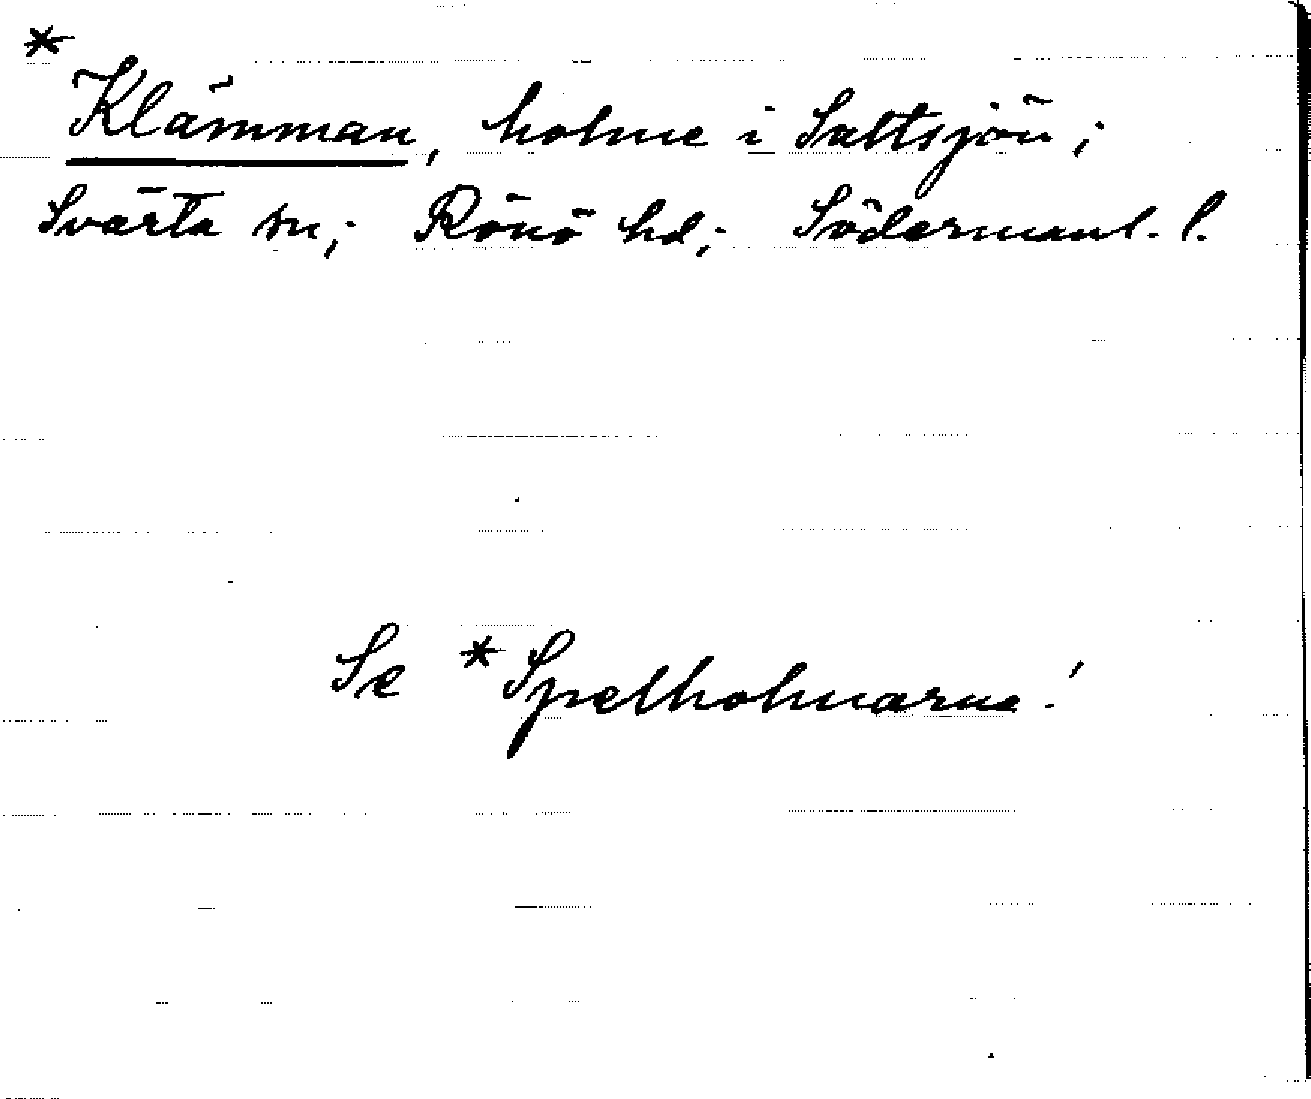 *
Klämman, holme i Saltsjön;
Svärta sn; Rönö hd; Södermanl. l.
Se *Spelholmarne!